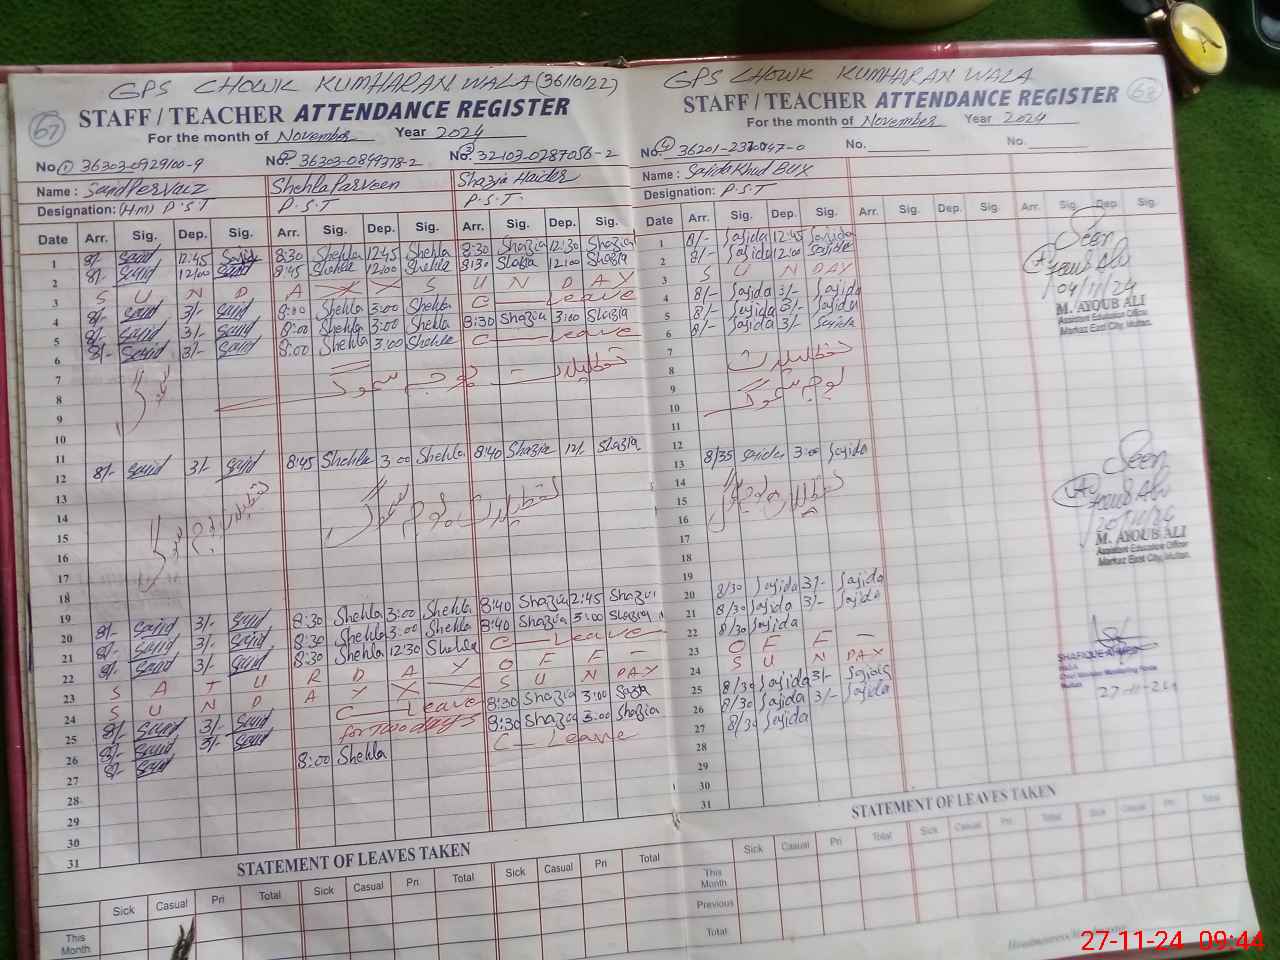 GPS CHOWK KUMHARAN WALA (36110122)
67 STAFF / TEACHER ATTENDANCE REGISTER
For the month of November Year 2024
No. 1 36303-0929100-9 No. 2 36303-0849378-2 No. 3 32103-0287056-2
Name : Sajid Pervaiz Shehla Parveen Shazia Haider
Designation: (Hm) P.S.T P.S.T P.S.T.
Date Arr. Sig. Dep. Sig. Arr. Sig. Dep. Sig. Arr. Sig. Dep. Sig.
1 8/- Sajid 12:45 Sajid 8:30 Shehla 12:45 Shehla 8:30 Shazia 12:30 Shazia
2 8/- Sajid 12:00 Sajid 8:45 Shehla 12:00 Shehla 8:30 Shazia 12:00 Shazia
3 S U N D A Y X S U N D A Y
4 8/- Sajid 3/- Sajid 8:00 Shehla 3:00 Shehla C - Leave
5 8/- Sajid 3/- Sajid 8:00 Shehla 3:00 Shehla 8:30 Shazia 3:00 Shazia
6 8/- Sajid 3/- Sajid 8:00 Shehla 3:00 Shehla C - Leave
7 تعطیلات بوجہ سموگ
8
9
10
11
12 8/- Sajid 3/- Sajid 8:45 Shehla 3:00 Shehla 8:40 Shazia 12/- Shazia
13
14 تعطیلات بوجہ سموگ
15
16
17
18
19
20 8/- Sajid 3/- Sajid 8:30 Shehla 3:00 Shehla 8:40 Shazia 2:45 Shazia
21 8/- Sajid 3/- Sajid 8:30 Shehla 3:00 Shehla 8:40 Shazia 3:00 Shazia
22 8/- Sajid 3/- Sajid 8:30 Shehla 12:30 Shehla C - Leave
23 S A T U R D A Y O F F -
24 S U N D A Y X X S U N D A Y
25 8/- Sajid 3/- Sajid C - Leave 8:30 Shazia 3:00 Shazia
26 8/- Sajid 3/- Sajid for two days 8:30 Shazia 3:00 Shazia
27 8/- Sajid 8:00 Shehla C - Leave
28
29
30
31
STATEMENT OF LEAVES TAKEN
Sick Casual Pri Total Sick Casual Pri Total Sick Casual Pri Total
This Month
GPS CHOWK KUMHARAN WALA
STAFF / TEACHER ATTENDANCE REGISTER 68
For the month of November Year 2024
No. 4 No. No.
Name : Sajida Khud Bux
Designation: P.S.T
Date Arr. Sig. Dep. Sig. Arr. Sig. Dep. Sig. Arr. Sig. Dep. Sig.
1 8/- Sajida 12:45 Sajida
2 8/- Sajida 12:00 Sajida
3 S U N DAY
4 8/- Sajida 3/- Sajida
5 8/- Sajida 3/- Sajida
6 8/- Sajida 3/- Sajida
7 تعطیلات
8
9 بوجہ سموگ
10
12 8/35 Sajida 3:00 Sajida
13
14 تعطیلات بوجہ سموگ
15
16
17
18
19
20 8/30 Sajida 3/- Sajida
21 8/30 Sajida 3/- Sajida
22 8/30 Sajida
23 O F F -
24 S U N DAY
25 8/30 Sajida 3/- Sajida
26 8/30 Sajida 3/- Sajida
27 8/30 Sajida
28
29
30
31
Seen
04/11/24
M. AYOUB ALI
Assistant Education Officer
Markaz East City, Multan.
Seen
M. AYOUB ALI
Assistant Education Officer
Markaz East City, Multan.
SHAFIQUE AHMED
27-11-24
STATEMENT OF LEAVES TAKEN
Sick Casual Pri Total Sick Casual Pri Total Sick Casual Pri Total
This Month
Previous
Total
27-11-24 09:44